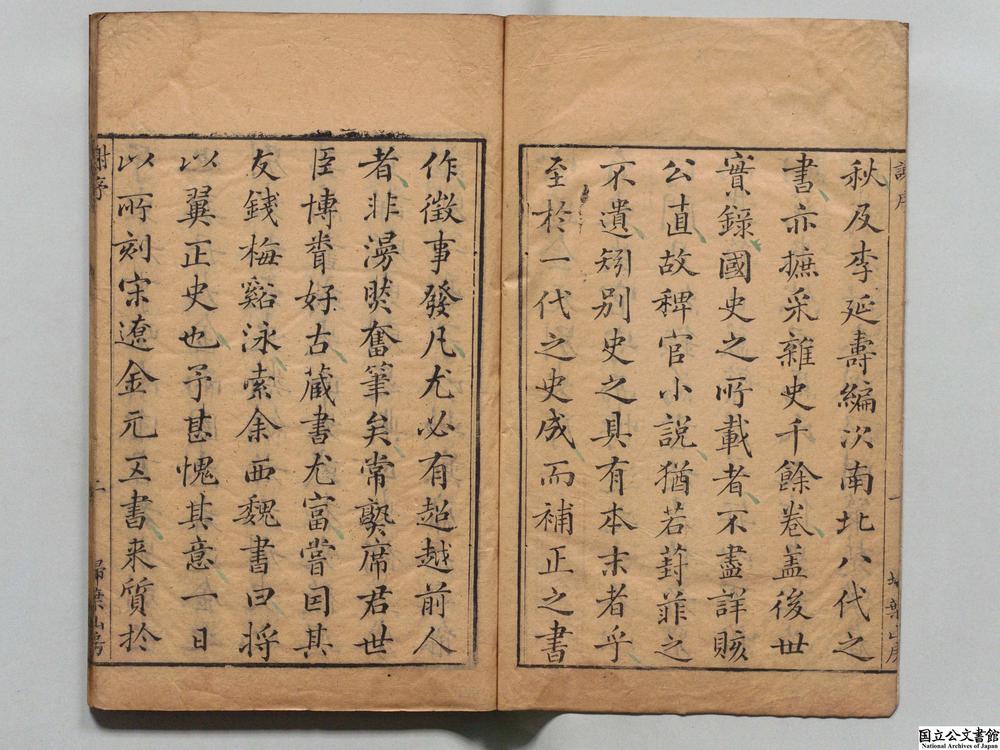 秋及李延壽編次南北八代之
書亦摭采雜史千餘卷盖後世
實錄國史之所載者不盡詳賅
公直故稗官小説猶若葑菲之
不遺矧别史之具有本末者乎
至於一代之史成而補正之書
作徵事發凡尤必有超越前人
者非漫然奮筆矣常熟席君世
臣博聞好古藏書尤富嘗因其
友錢梅谿泳索余西魏書曰將
以翼正史也予甚愧其意一日
以所刻宋遼金元五書来質於
謝序
二
掃葉山房
国立公文書館
National Archives of Japan